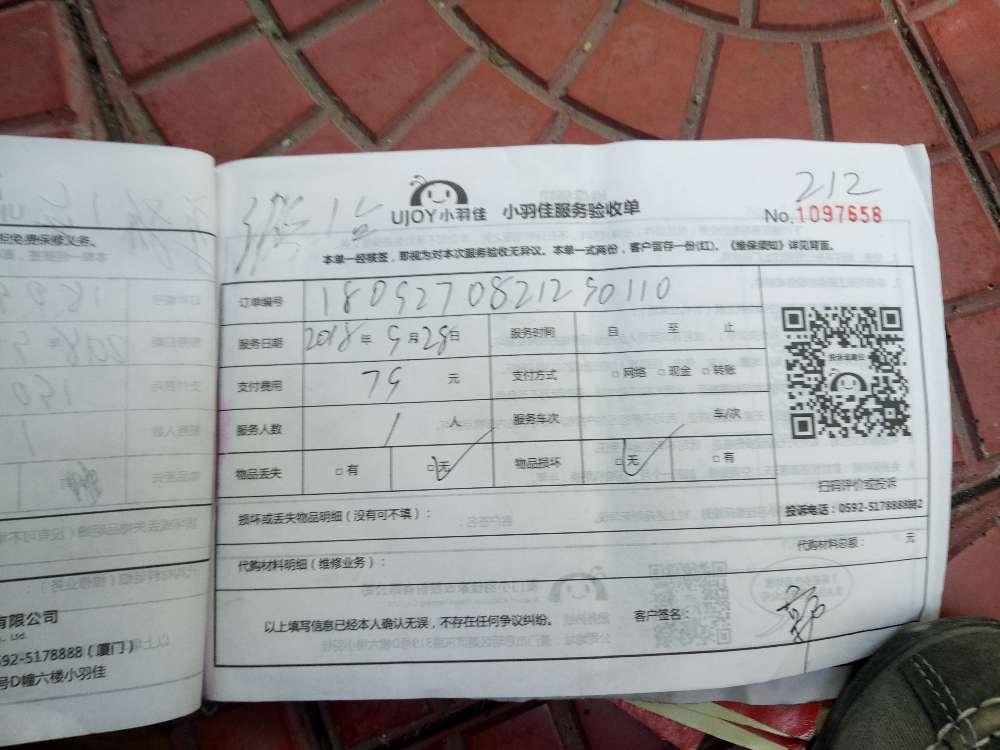 212
UJOY小羽佳 小羽佳服务验收单
No.1097658
本单一经核签，即视为对本次服务验收无异议。本单一式两份，客户留存一份(红)。《维保须知》详见背面。
订单编号 180527082125 0110
服务日期 2018年5月28日 服务时间 自 至 止
支付费用 75 元 支付方式 □网络 □现金 □转账
服务人数 1 人 服务车次 车/次
物品丢失 □有 □无 物品损坏 □无 □有
扫码评价或投诉
投诉电话：0592-5178888转2
损坏或丢失物品明细（没有可不填）：
代购材料明细（维修业务）： 代购材料总额： 元
以上填写信息已经本人确认无误，不存在任何争议纠纷。 客户签名：
免费保修义务。
有限公司
Ltd.
592-5178888（厦门）
号D幢六楼小羽佳